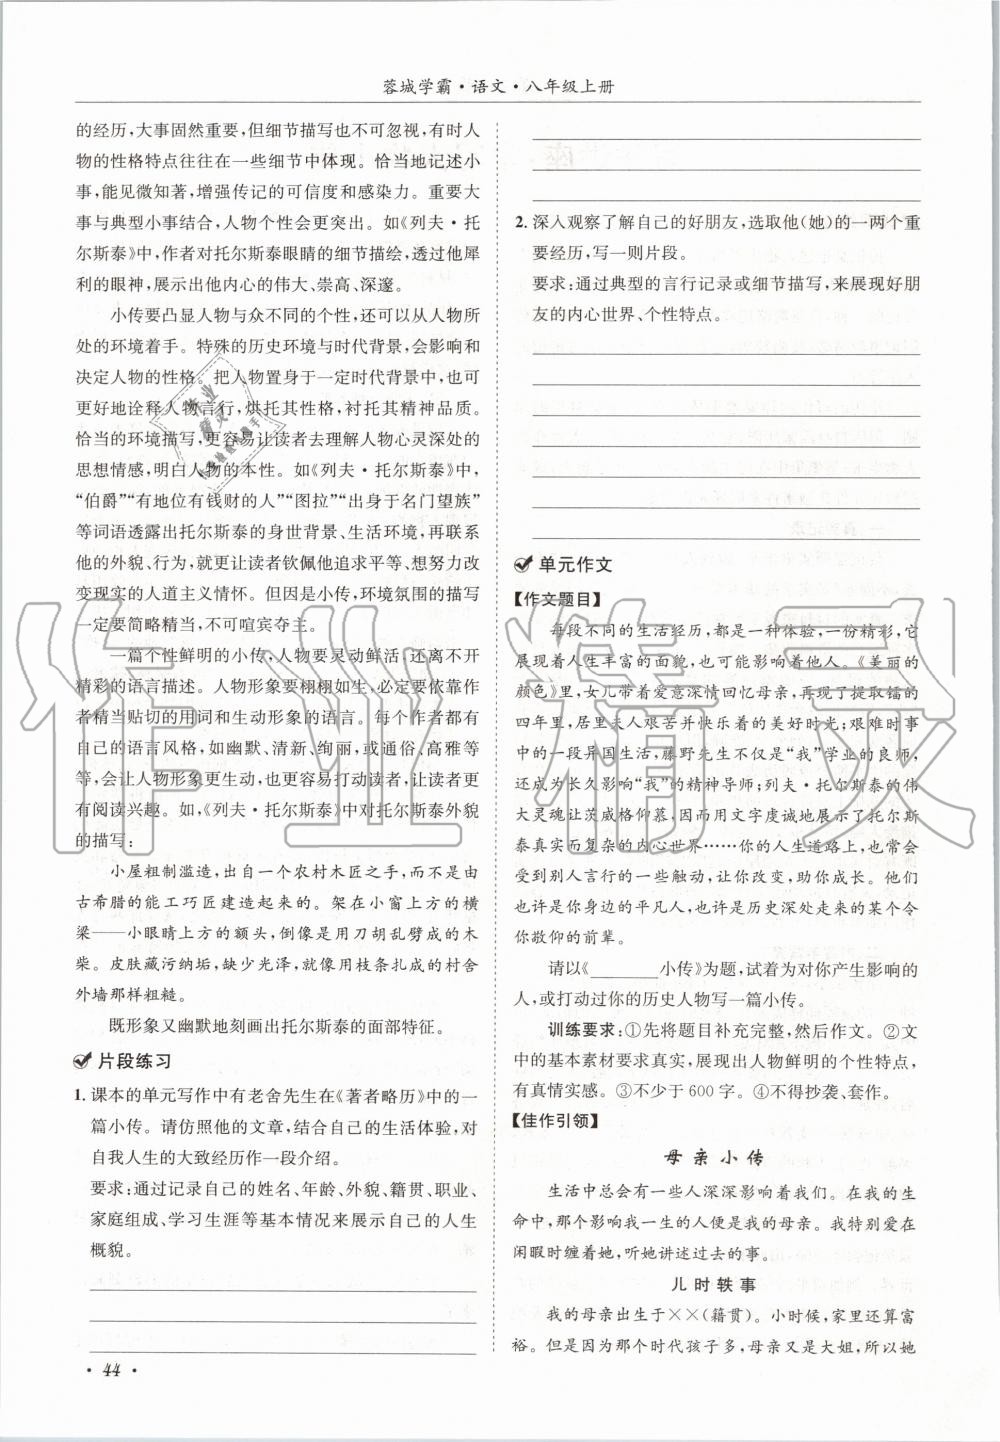 蓉城学霸·语文·八年级上册
的经历，大事固然重要，但细节描写也不可忽视，有时人
物的性格特点往往在一些细节中体现。恰当地记述小
事，能见微知著，增强传记的可信度和感染力。重要大
事与典型小事结合，人物个性会更突出。如《列夫·托
尔斯泰》中，作者对托尔斯泰眼睛的细节描绘，透过他犀
利的眼神，展示出他内心的伟大、崇高、深邃。
小传要凸显人物与众不同的个性，还可以从人物所
处的环境着手。特殊的历史环境与时代背景，会影响和
决定人物的性格。把人物置身于一定时代背景中，也可
更好地诠释人物言行，烘托其性格，衬托其精神品质。
恰当的环境描写，更容易让读者去理解人物心灵深处的
思想情感，明白人物的本性。如《列夫·托尔斯泰》中，
“伯爵”“有地位有钱财的人”“图拉”“出身于名门望族”
等词语透露出托尔斯泰的身世背景、生活环境，再联系
他的外貌、行为，就更让读者钦佩他追求平等、想努力改
变现实的人道主义情怀。但因是小传，环境氛围的描写
一定要简略精当，不可喧宾夺主。
一篇个性鲜明的小传，人物要灵动鲜活，还离不开
精彩的语言描述。人物形象要栩栩如生，必定要依靠作
者精当贴切的用词和生动形象的语言。每个作者都有
自己的语言风格，如幽默、清新、绚丽，或通俗、高雅等
等，会让人物形象更生动，也更易打动读者，让读者更
有阅读兴趣。如，《列夫·托尔斯泰》中对托尔斯泰外貌
的描写：
小屋粗制滥造，出自一个农村木匠之手，而不是由
古希腊的能工巧匠建造起来的。架在小窗上方的横
梁——小眼睛上方的额头，倒像是用刀胡乱劈成的木
柴。皮肤藏污纳垢，缺少光泽，就像用枝条扎成的村舍
外墙那样粗糙。
既形象又幽默地刻画出托尔斯泰的面部特征。
片段练习
1. 课本的单元写作中有老舍先生在《著者略历》中的一
篇小传。请仿照他的文章，结合自己的生活体验，对
自我人生的大致经历作一段介绍。
要求：通过记录自己的姓名、年龄、外貌、籍贯、职业、
家庭组成、学习生涯等基本情况来展示自己的人生
概貌。
· 44 ·
2. 深入观察了解自己的好朋友，选取他（她）的一两个重
要经历，写一则片段。
要求：通过典型的言行记录或细节描写，来展现好朋
友的内心世界、个性特点。
单元作文
【作文题目】
每段不同的生活经历，都是一种体验，一份精彩，它
展现着人生丰富的面貌，也可能影响着他人。《美丽的
颜色》里，女儿带着爱意深情回忆母亲，再现了提取镭的
四年里，居里夫人艰苦并快乐着的美好时光；艰难时事
中的一段异国生活，藤野先生不仅是“我”学业的良师，
还成为长久影响“我”的精神导师；列夫·托尔斯泰的伟
大灵魂让茨威格仰慕，因而用文字虔诚地展示了托尔斯
泰真实而复杂的内心世界……你的人生道路上，也常会
受到别人言行的一些触动，让你改变，助你成长。他们
也许是你身边的平凡人，也许是历史深处走来的某个令
你敬仰的前辈。
请以《________小传》为题，试着为对你产生影响的
人，或打动过你的历史人物写一篇小传。
训练要求：①先将题目补充完整，然后作文。②文
中的基本素材要求真实，展现出人物鲜明的个性特点，
有真情实感。③不少于600字。④不得抄袭、套作。
【佳作引领】
母亲小传
生活中总会有一些人深深影响着我们。在我的生
命中，那个影响我一生的人便是我的母亲。我特别爱在
闲暇时缠着她，听她讲述过去的事。
儿时轶事
我的母亲出生于××（籍贯）。小时候，家里还算富
裕。但是因为那个时代孩子多，母亲又是大姐，所以她
作业精灵